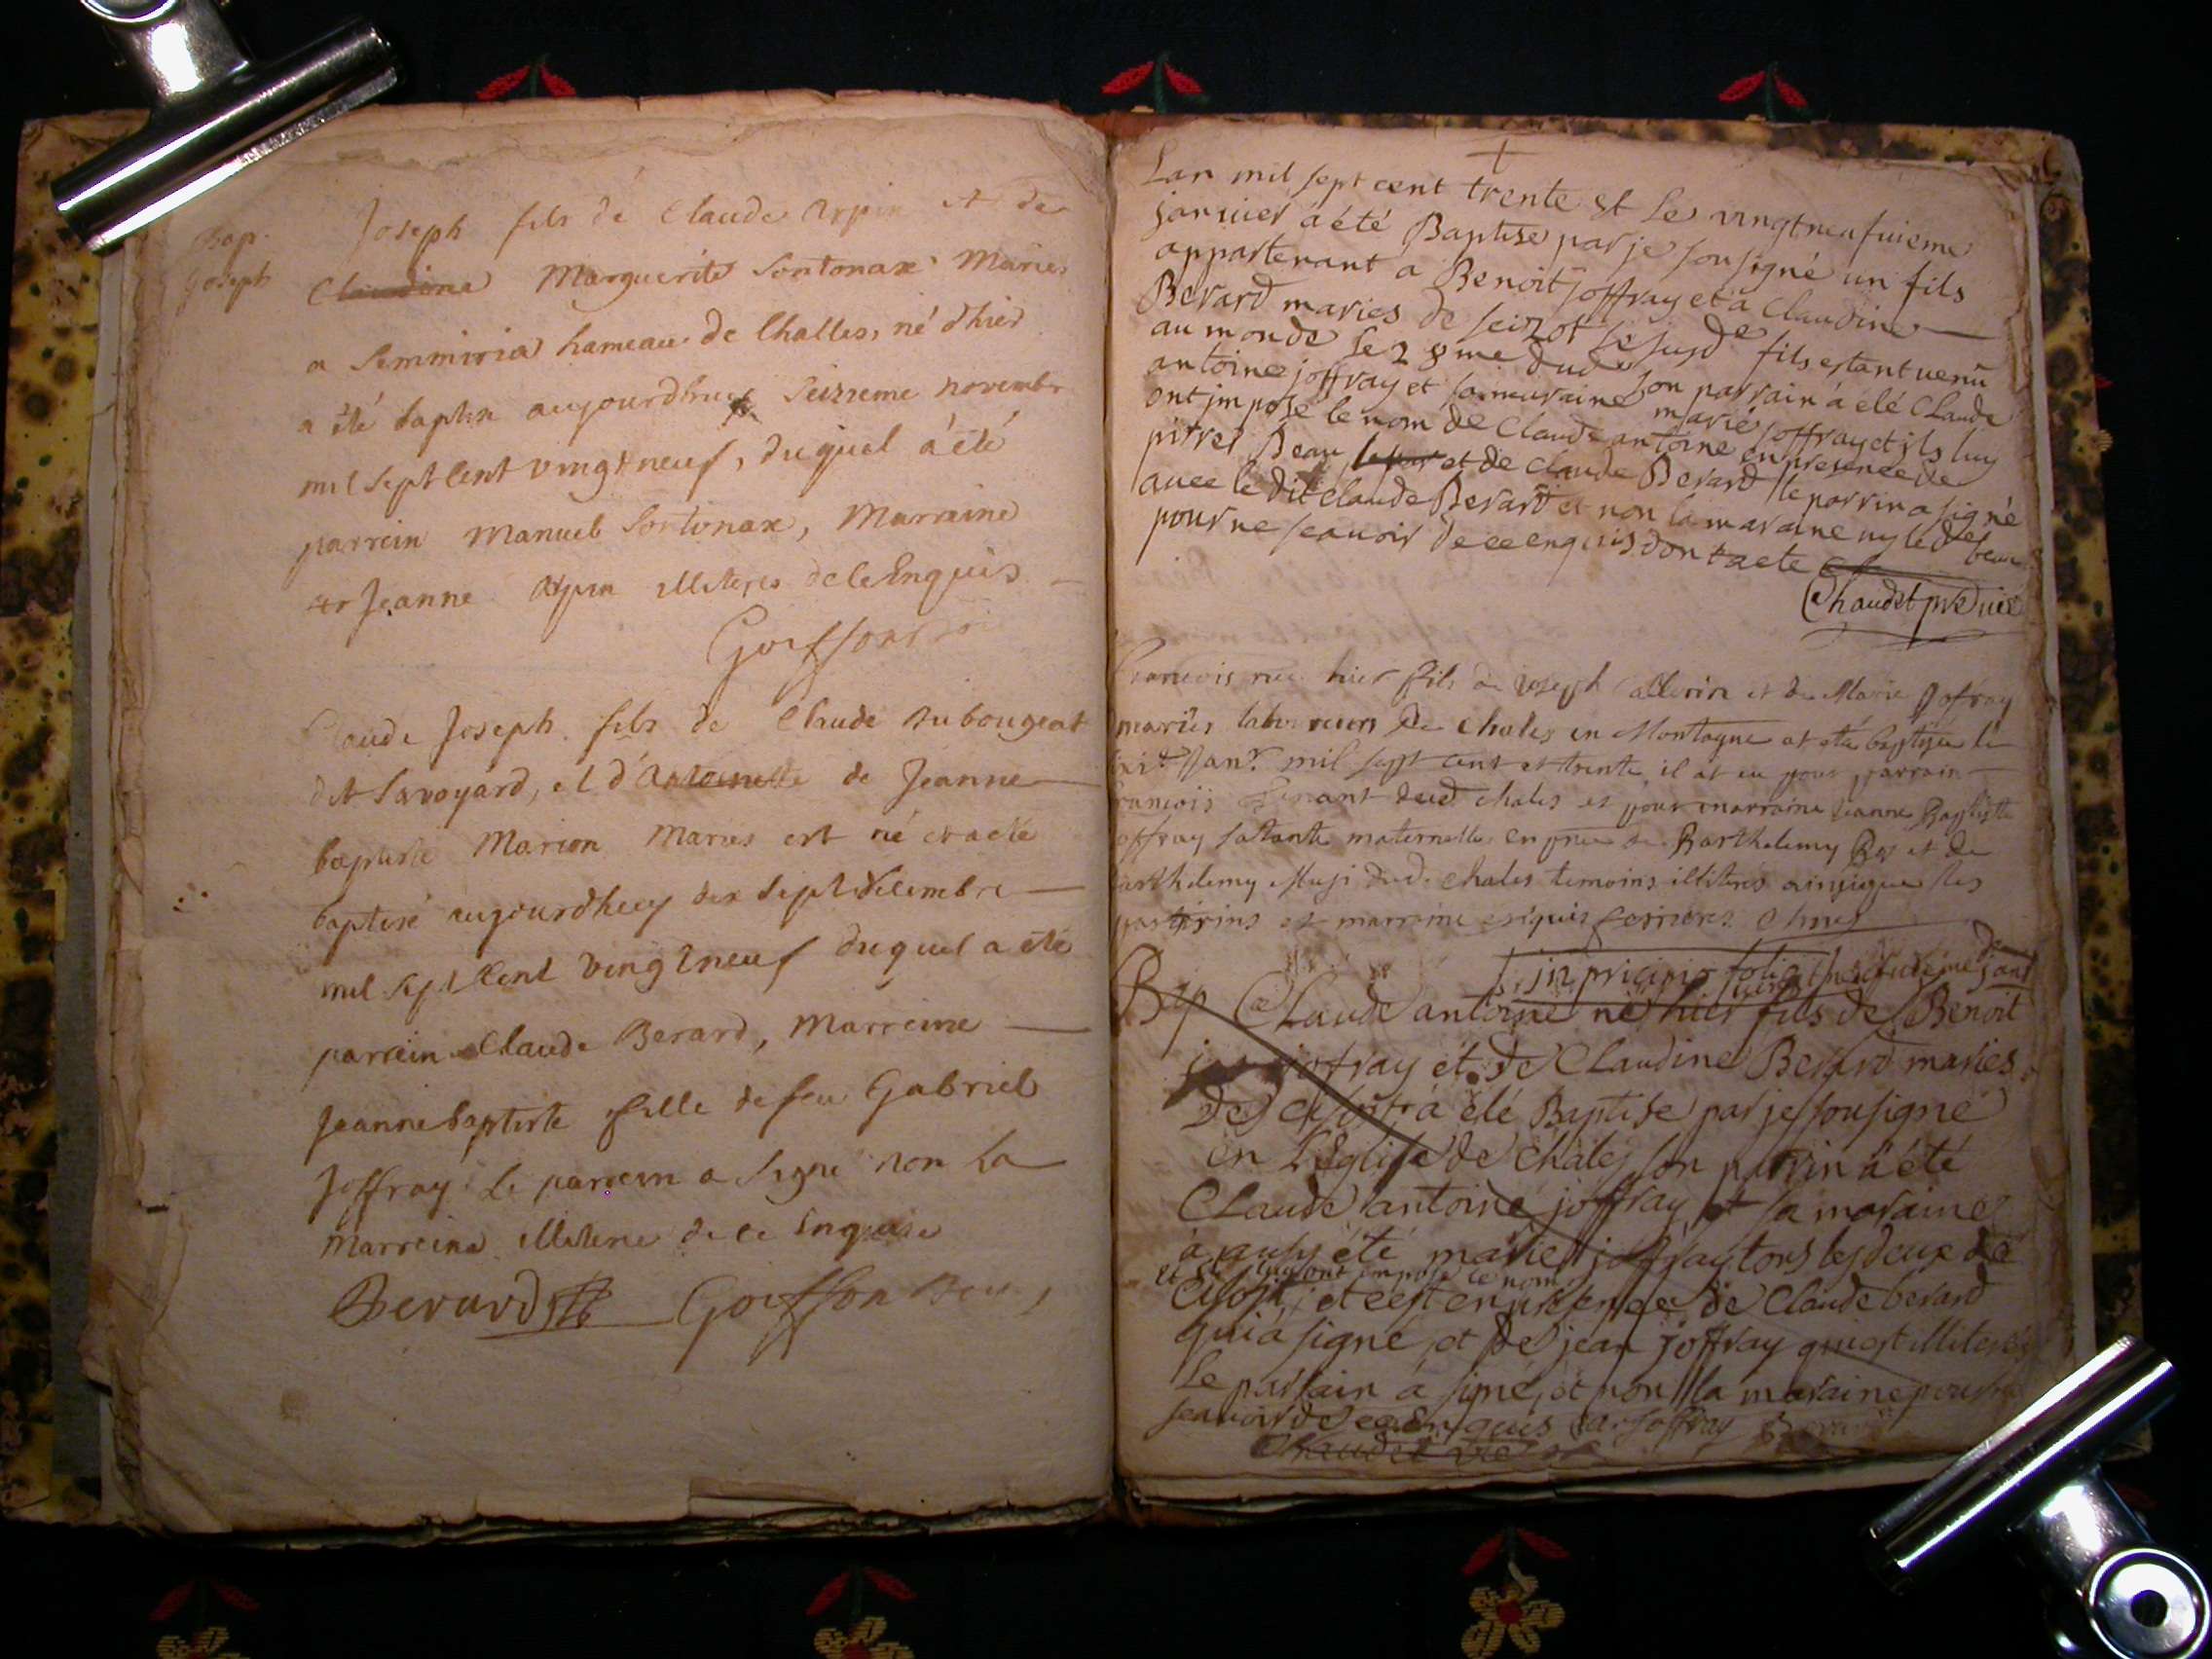 Bap.
Joseph
Joseph fils dé Claude Arpin et de
Claudine Marguerite Sontonax Maries
a Semmiria hameau de Challes, né d'hier
a été baptisé aujourdhuy Seizieme novembre
mil sept Cent vingt neuf, duquel a été
parrein Manuel Sontonax, Marraine
Jeanne Arpin illiteres de ce Enquis
Goiffon
Claude Joseph fils de Claude Dubougeat
dit Savoyard, et d'Antoinette de Jeanne
baptiste Marion Maries est né et a eté
baptisé aujourdhuy dix Sept Xcembre
mil Sept Cent Vingt neuf duquel a été
parrein Claude Berard, Marreine
Jeanne baptiste fille de feu Gabriel
Joffray le parrein a Signé non La
Marreine illiterée de ce Enquise
Berard Goiffon
Lan mil sept cent trente et Le vingtneufuieme
januier à été Baptisé par je sousigné un fils
appartenant a Benoit joffray et a Claudine
Berard maries de le susd. fils estant uenû
au monde le 28me dud. son parrain à élé Claude
antoine joffray et sa maraine marie joffray et ils luy
ont imposé le nom de Claude antoine en presence de
Beau et de Claude Berard le parrin a signé
auec le dit Claude Berard et non la maraine ny led. beau
pour ne scauoir de ce enquis dont acte
Chaudet pre uic
François né hier fils de Joseph Callerin et de Marie Jofray
mariés laboureurs de Chales en Montagne at eté baptisé le
Janr. mil sept cent et trente il at eu pour parrain
françois dud. chales et pour marraine Jeanne Baptiste
joffray sa tante maternelle en pnce de Barthelemy et de
Barthelemy dud. Chales temoins illiterés
parrins et marraine
in principio folio
Bap Claude antoine né hier fils de Benoit
joffray et de Claudine Berard maries
De à élé Baptisé par je sousigné
en L'Eglise de Chales son parrin à été
Claude antoine joffray et sa maraine
à aussy été marie joffray tous les deux de
et ils luy ont imposé le nom
et ce en presence de Claude berard
qui a signé et de jean joffray qui est illiteré
Le parrain à signé et non la maraine pour ne
scauoir de ce Enquis joffray Berard
Chaudet vic